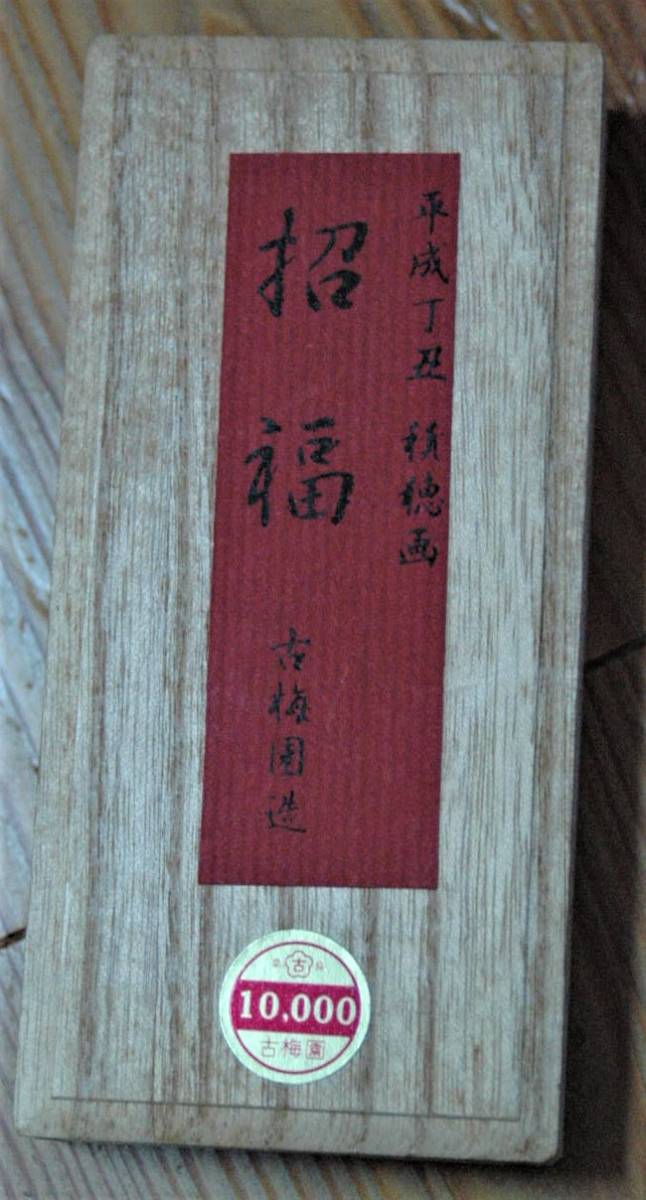 平成丁丑 積穂画
招福
古梅園造
古
10,000
古梅園